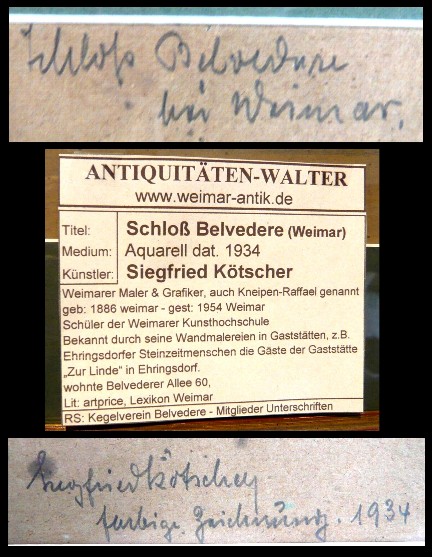 Schloß Belvedere
bei Weimar.
ANTIQUITÄTEN-WALTER
www.weimar-antik.de
Titel: Schloß Belvedere (Weimar)
Medium: Aquarell dat. 1934
Künstler: Siegfried Kötscher
Weimarer Maler & Grafiker, auch Kneipen-Raffael genannt
geb: 1886 weimar - gest: 1954 Weimar
Schüler der Weimarer Kunsthochschule
Bekannt durch seine Wandmalereien in Gaststätten, z.B.
Ehringsdorfer Steinzeitmenschen die Gäste der Gaststätte
„Zur Linde” in Ehringsdorf.
wohnte Belvederer Allee 60,
Lit: artprice, Lexikon Weimar
RS: Kegelverein Belvedere - Mitglieder Unterschriften
Siegfried Kötscher
farbige Zeichnung. 1934